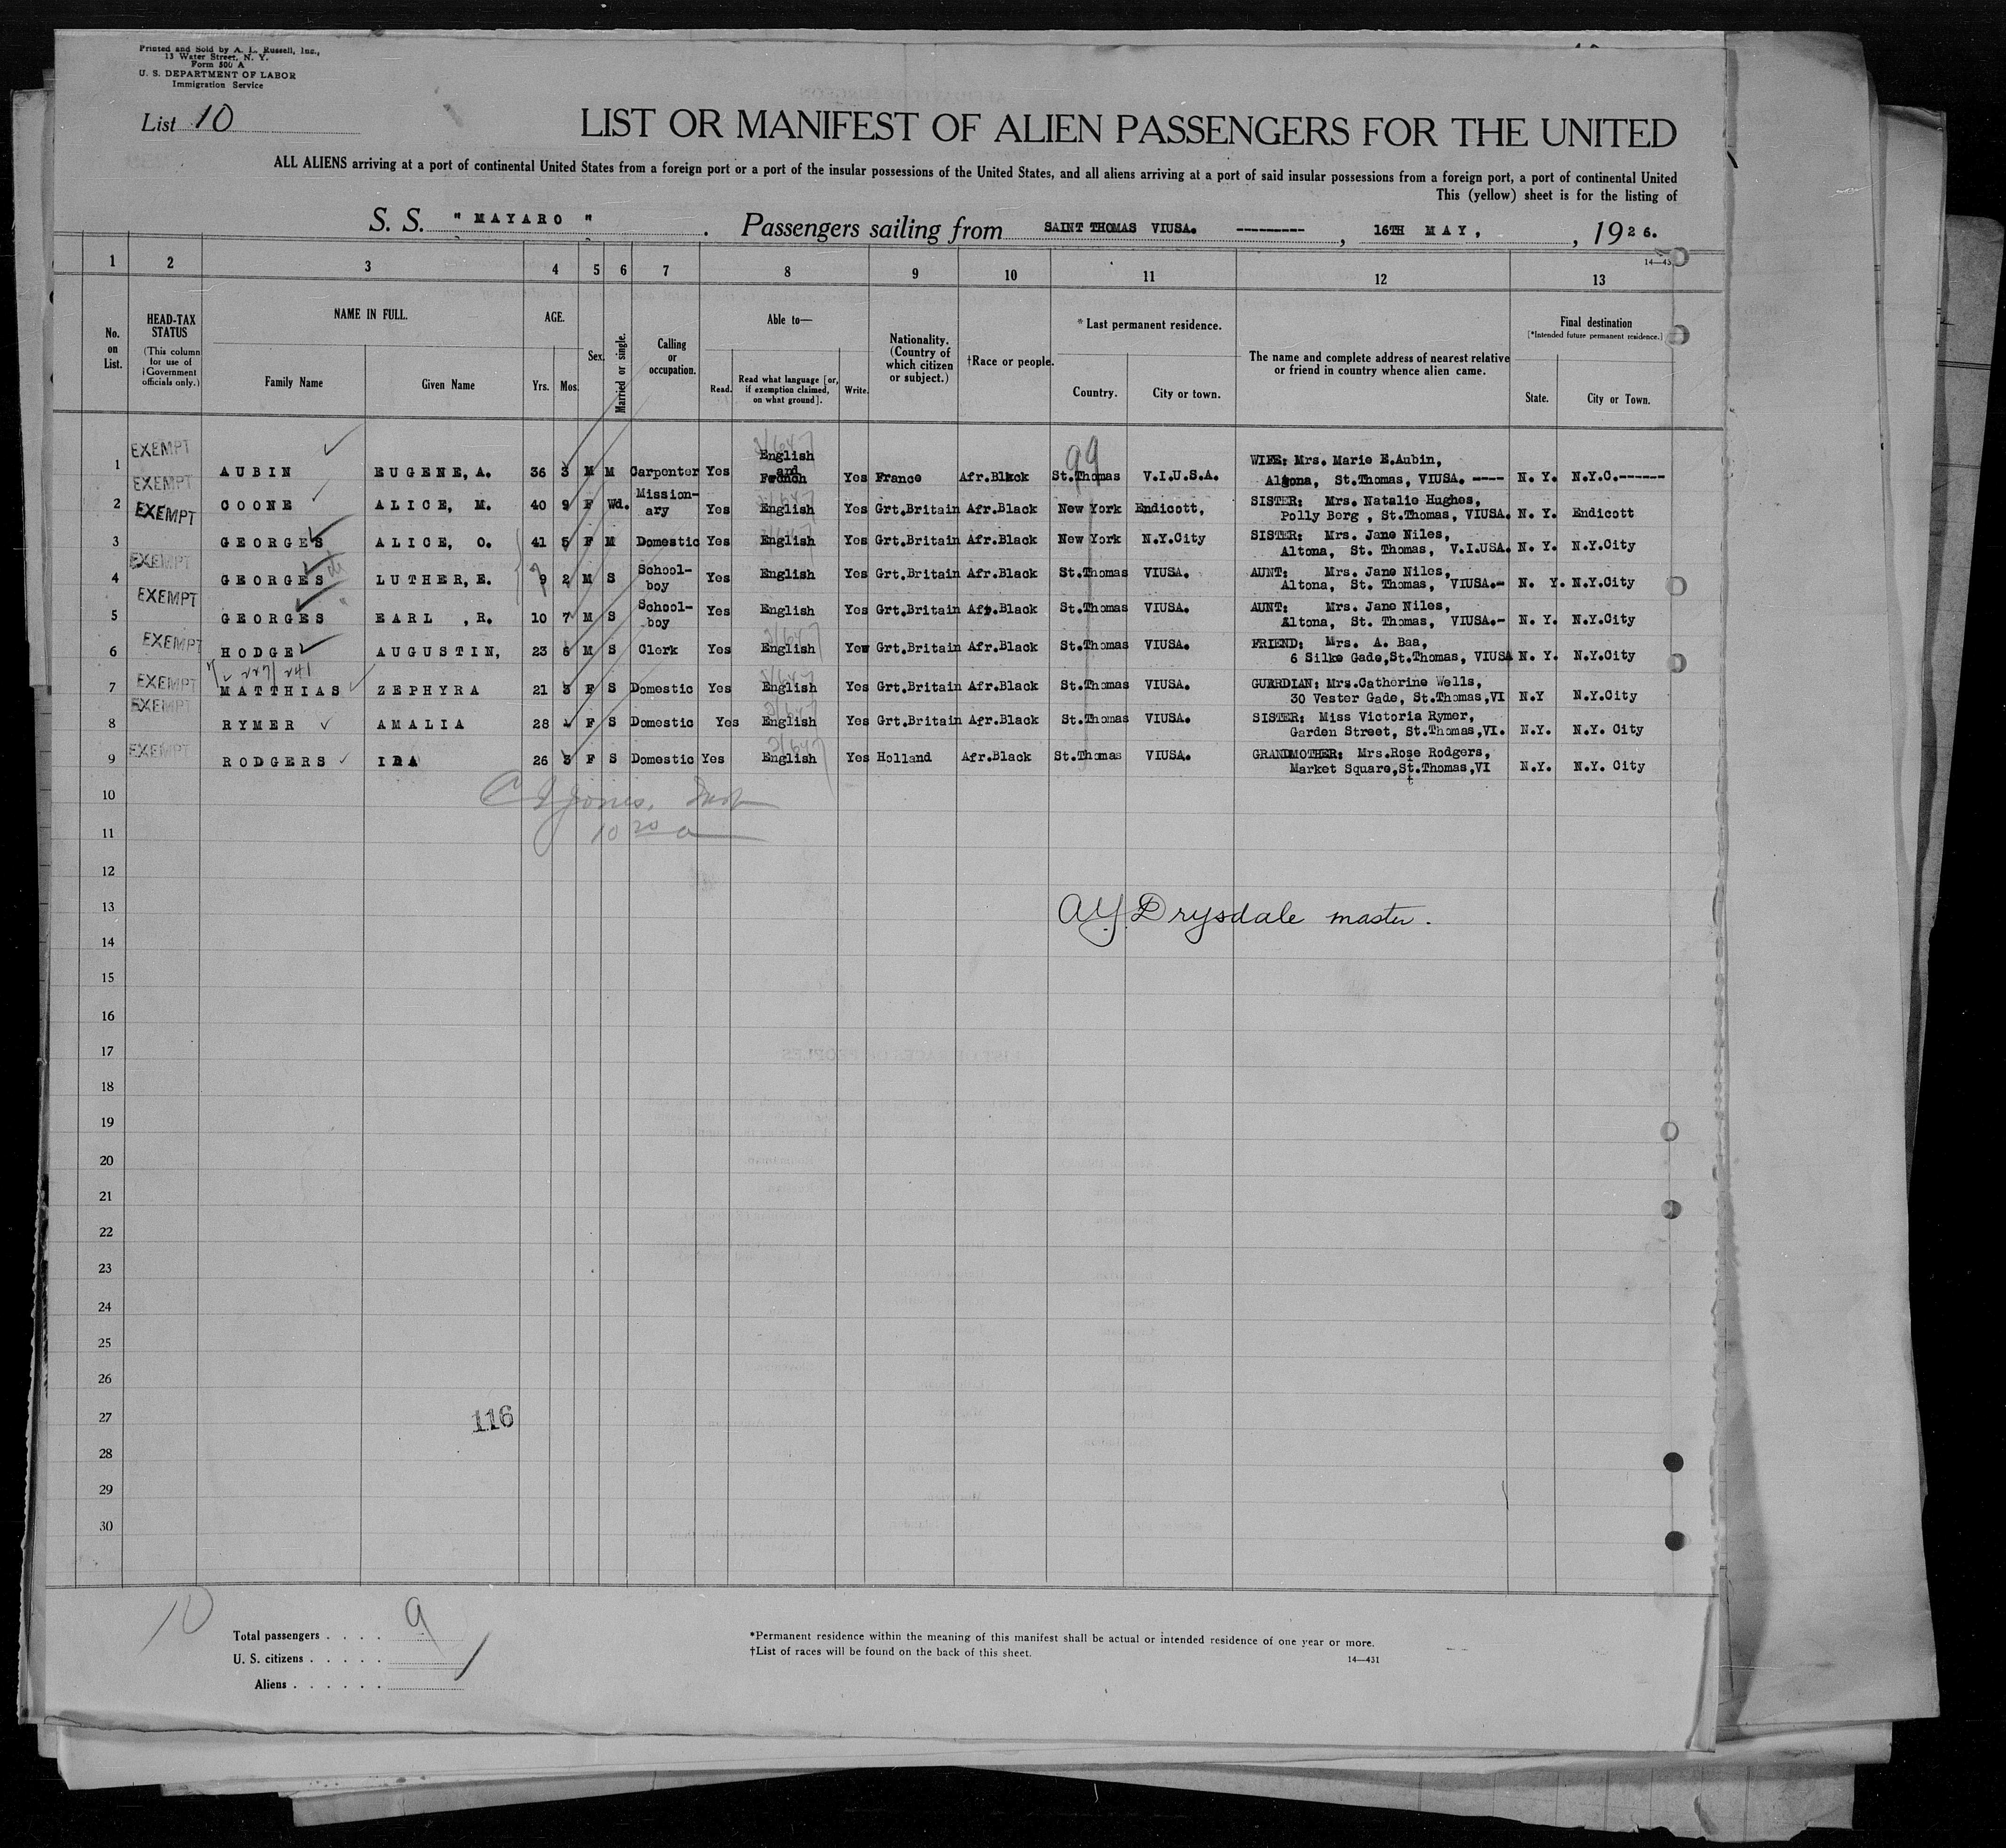 Printed and Sold by A. L. Russell, Inc.,
13 Water Street, N. Y.
Form 500 A
U. S. DEPARTMENT OF LABOR
Immigration Service
List 10
LIST OR MANIFEST OF ALIEN PASSENGERS FOR THE UNITED
ALL ALIENS arriving at a port of continental United States from a foreign port or a port of the insular possessions of the United States, and all aliens arriving at a port of said insular possessions from a foreign port, a port of continental United
This (yellow) sheet is for the listing of
S. S. "MAYARO". Passengers sailing from SAINT THOMAS VIUSA. ---------, 16TH MAY, , 1926.
1 2 3 4 5 6 7 8 9 10 11 12 13
No. on List.
HEAD-TAX STATUS
(This column for use of Government officials only.)
NAME IN FULL.
Family Name
Given Name
AGE.
Yrs. Mos.
Sex.
Married or single.
Calling or occupation.
Able to—
Read.
Read what language [or, if exemption claimed, on what ground].
Write.
Nationality. (Country of which citizen or subject.)
†Race or people.
* Last permanent residence.
Country.
City or town.
The name and complete address of nearest relative or friend in country whence alien came.
Final destination
[*Intended future permanent residence.]
State.
City or Town.
1 EXEMPT AUBIN EUGENE, A. 36 3 M M Carpenter Yes English and French Yes France Afr.Black St.Thomas V.I.U.S.A. WIFE: Mrs. Marie E.Aubin, Altona, St.Thomas, VIUSA. ---- N. Y. N.Y.C.------
2 EXEMPT COONE ALICE, M. 40 9 F Wd. Mission-ary Yes English Yes Grt.Britain Afr.Black New York Endicott, SISTER: Mrs. Natalie Hughes, Polly Berg , St.Thomas, VIUSA. N. Y. Endicott
3 EXEMPT GEORGES ALICE, O. 41 5 F M Domestic Yes English Yes Grt.Britain Afr.Black New York N.Y.City SISTER: Mrs. Jane Niles, Altona, St. Thomas, V.I.USA. N. Y. N.Y.City
4 EXEMPT GEORGES LUTHER, E. 9 2 M S School-boy Yes English Yes Grt.Britain Afr.Black St.Thomas VIUSA. AUNT: Mrs. Jane Niles, Altona, St. Thomas, VIUSA.- N. Y. N.Y.City
5 EXEMPT GEORGES EARL ,R. 10 7 M S School-boy Yes English Yes Grt.Britain Afr.Black St.Thomas VIUSA. AUNT: Mrs. Jane Niles, Altona, St. Thomas, VIUSA.- N. Y. N.Y.City
6 EXEMPT HODGE AUGUSTIN, 23 M S Clerk Yes English Yes Grt.Britain Afr.Black St.Thomas VIUSA. FRIEND: Mrs. A. Baa, 6 Silke Gade,St.Thomas, VIUSA N. Y. N.Y.City
7 EXEMPT MATTHIAS ZEPHYRA 21 3 F S Domestic Yes English Yes Grt.Britain Afr.Black St.Thomas VIUSA. GUARDIAN: Mrs.Catherine Wells, 30 Vester Gade, St.Thomas,VI N.Y N.Y.City
8 EXEMPT RYMER AMALIA 28 F S Domestic Yes English Yes Grt.Britain Afr.Black St.Thomas VIUSA. SISTER: Miss Victoria Rymer, Garden Street, St.Thomas,VI. N.Y. N.Y. City
9 EXEMPT RODGERS IDA 26 3 F S Domestic Yes English Yes Holland Afr.Black St.Thomas VIUSA. GRANDMOTHER: Mrs.Rose Rodgers, Market Square,St.Thomas,VI N.Y. N.Y. City
99
10
11
12
13
A.Y. Drysdale master.
14
15
16
17
18
19
20
21
22
23
24
25
26
27
116
28
29
30
10
Total passengers . . . . 9
U. S. citizens . . . . .
Aliens . . . . . .
*Permanent residence within the meaning of this manifest shall be actual or intended residence of one year or more.
†List of races will be found on the back of this sheet.
14—431